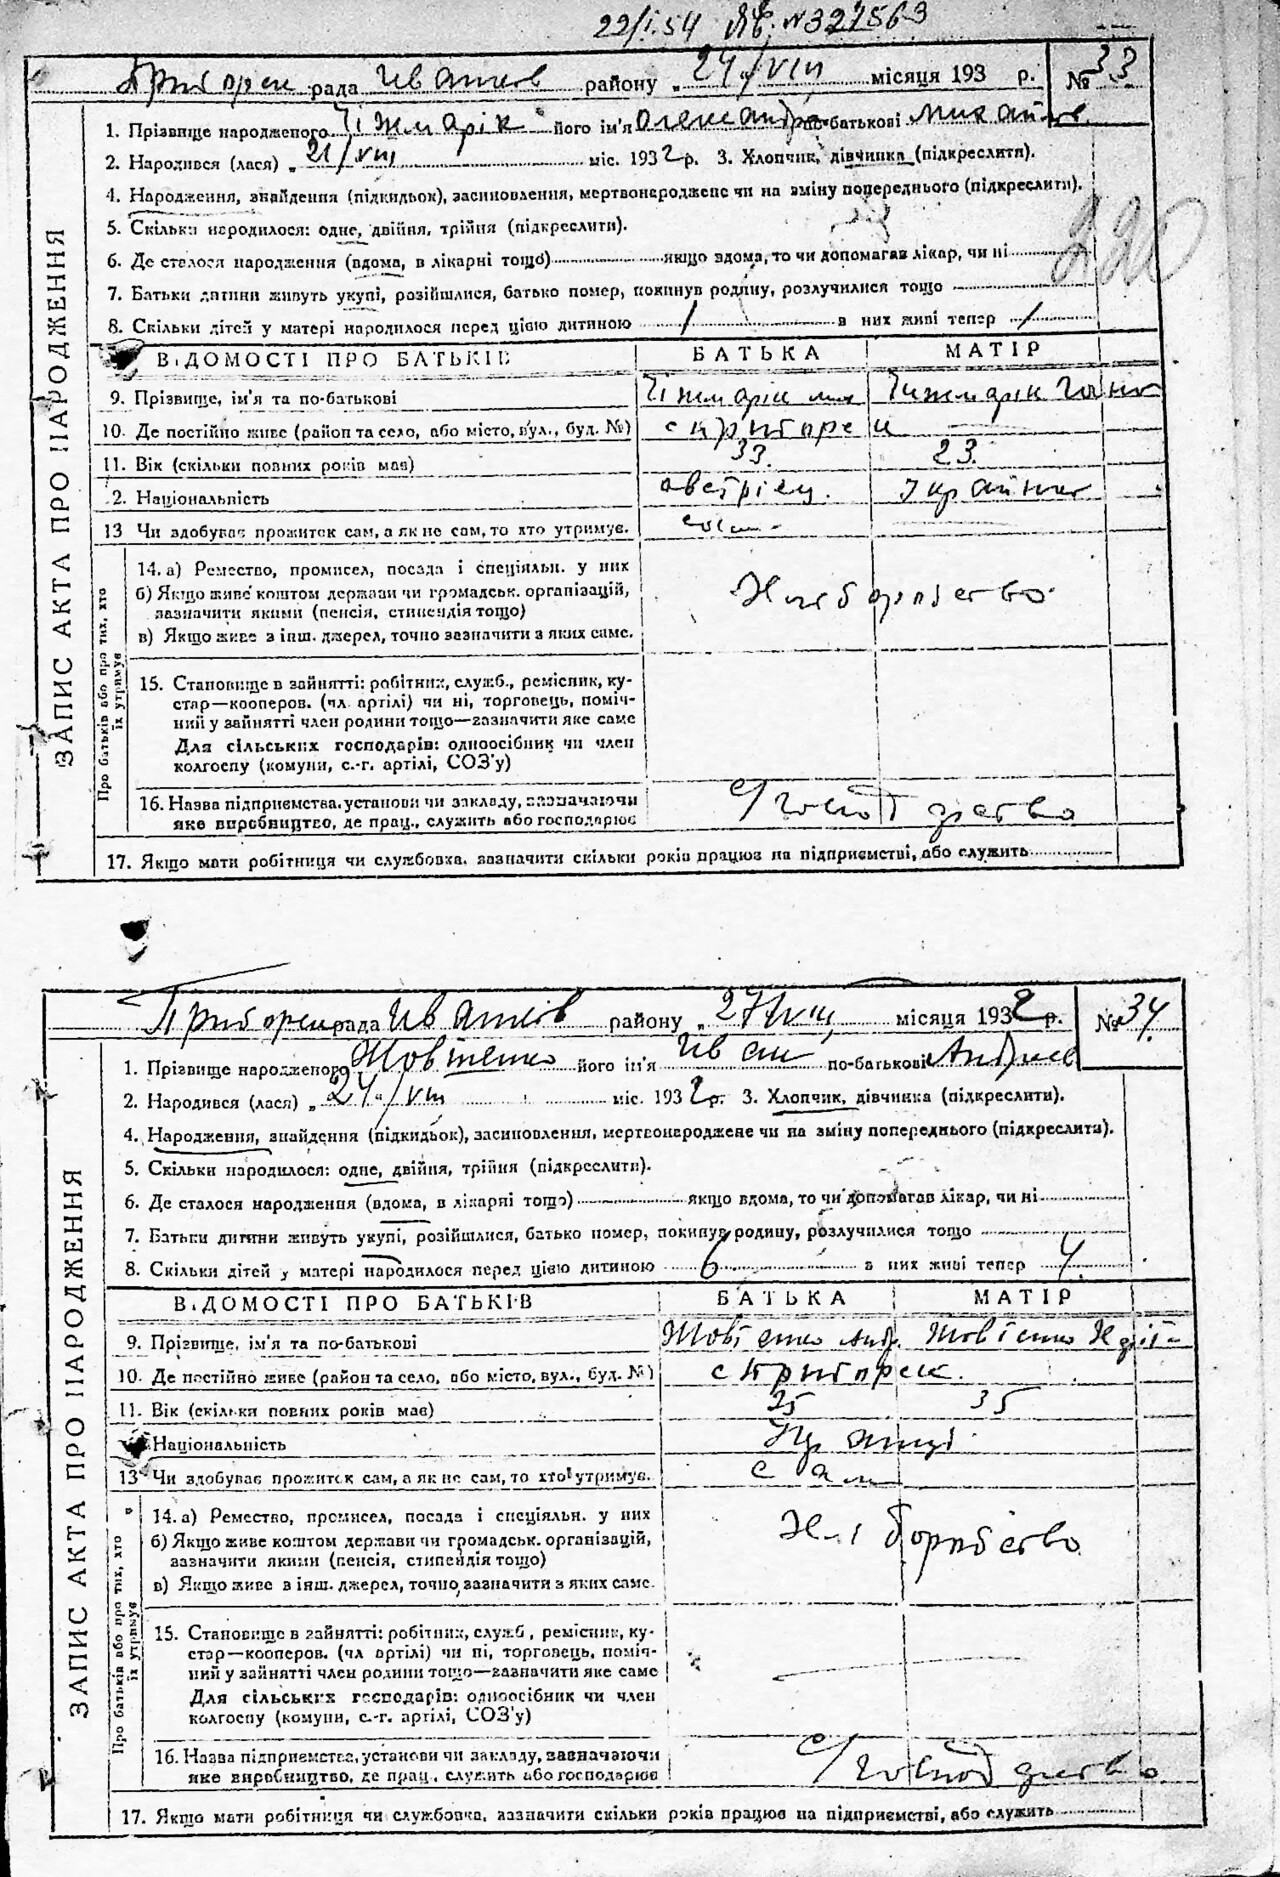 22/I.54 Яв. №327563
Приборськ рада Іванків району „24/VIII місяця 193 р. № 33
1. Прізвище народженого Чіжмарік його ім'я Олександра по-батькові Михайлів
2. Народився (лася) „21/VIII міс. 1932 р. 3. Хлопчик, дівчинка (підкреслити).
4. Народження, знайдення (підкидьок), засиновлення, мертвонароджене чи на зміну попереднього (підкреслити).
5. Скільки народилося: одне, двійня, трійня (підкреслити).
220
6. Де сталося народження (вдома, в лікарні тощо) якщо вдома, то чи допомагав лікар, чи ні
7. Батьки дитини живуть укупі, розійшлися, батько помер, покинув родину, розлучилися тощо
8. Скільки дітей у матері народилося перед цією дитиною 1 з них живі тепер 1
ЗАПИС АКТА ПРО НАРОДЖЕННЯ
ВІДОМОСТІ ПРО БАТЬКІВ БАТЬКА МАТІР
9. Прізвище, ім'я та по-батькові Чіжмарік Мих Чижмарік Ганна
10. Де постійно живе (район та село, або місто, вул., буд. №) с Приборск
11. Вік (скільки повних років має) 33. 23.
2. Національність австріец. Українка
13 Чи здобуває прожиток сам, а як не сам, то хто утримує. сам
Про батьків або про тих, хто їх утримує
14. а) Ремество, промисел, посада і спеціяльн. у них
б) Якщо живе коштом держави чи громадськ. організацій,
зазначити якими (пенсія, стипендія тощо)
Хліборобство
в) Якщо живе з інш. джерел, точно зазначити з яких саме.
15. Становище в зайнятті: робітник, служб., ремісник, ку-
стар—кооперов. (чл. артілі) чи ні, торговець, поміч-
ний у зайнятті член родини тощо—зазначити яке саме
Для сільських господарів: одноосібник чи член
колгоспу (комуни, с.-г. артілі, СОЗ'у)
16. Назва підприємства, установи чи закладу, зазначаючи
яке виробництво, де прац., служить або господарює
с/господарство
17. Якщо мати робітниця чи службовка, зазначити скільки років працює на підприємстві, або служить
Приборськ рада Іванків району „27/VIII місяця 1932 р. № 34.
1. Прізвище народженого Жовтенко його ім'я Іван по-батькові Андрієв
2. Народився (лася) „24/VIII міс. 1932 р. 3. Хлопчик, дівчинка (підкреслити).
4. Народження, знайдення (підкидьок), засиновлення, мертвонароджене чи на зміну попереднього (підкреслити).
5. Скільки народилося: одне, двійня, трійня (підкреслити).
6. Де сталося народження (вдома, в лікарні тощо) якщо вдома, то чи допомагав лікар, чи ні
7. Батьки дитини живуть укупі, розійшлися, батько помер, покинув родину, розлучилися тощо
8. Скільки дітей у матері народилося перед цією дитиною 6 з них живі тепер 4.
ЗАПИС АКТА ПРО НАРОДЖЕННЯ
ВІДОМОСТІ ПРО БАТЬКІВ БАТЬКА МАТІР
9. Прізвище, ім'я та по-батькові Жовтенко Андр. Жовтенко
10. Де постійно живе (район та село, або місто, вул., буд. №) с Приборск.
11. Вік (скільки повних років має) 35 35
Національність Українці
13 Чи здобуває прожиток сам, а як не сам, то хто утримує. сам
Про батьків або про тих, хто їх утримує
14. а) Ремество, промисел, посада і спеціяльн. у них
б) Якщо живе коштом держави чи громадськ. організацій,
зазначити якими (пенсія, стипендія тощо)
Хліборобство
в) Якщо живе з інш. джерел, точно зазначити з яких саме.
15. Становище в зайнятті: робітник, служб., ремісник, ку-
стар—кооперов. (чл артілі) чи ні, торговець, поміч-
ний у зайнятті член родини тощо—зазначити яке саме
Для сільських господарів: одноосібник чи член
колгоспу (комуни, с.-г. артілі, СОЗ'у)
16. Назва підприємства, установи чи закладу, зазначаючи
яке виробництво, де прац., служить або господарює
с/господарство
17. Якщо мати робітниця чи службовка, зазначити скільки років працює на підприємстві, або служить